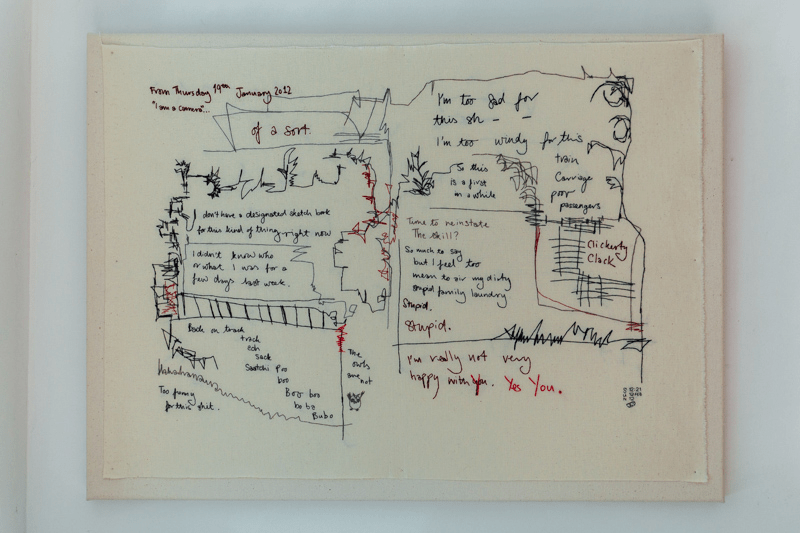 From Thursday 19th January 2012
"I am a camera"...
of a sort.
I don't have a designated sketch book
for this kind of thing right now
I didn't know who
or what I was for a
few days last week.
Back on track
track
ech
sack
Saatchi Pro
boo
Boo boo
bo bo
Bubo
Hahahaaaaaa
Too funny
for this shet.
The
owls
are not
I'm too sad for
this sh – –
I'm too windy for this
train
Carriage
poor
passengers
So this
is a first
in a while
Time to reinstate
The skill?
So much to say
but I feel too
mean to air my dirty
stupid family laundry
Stupid.
Stupid.
Clickerty
Clack
I'm really not very
happy with You. Yes You.